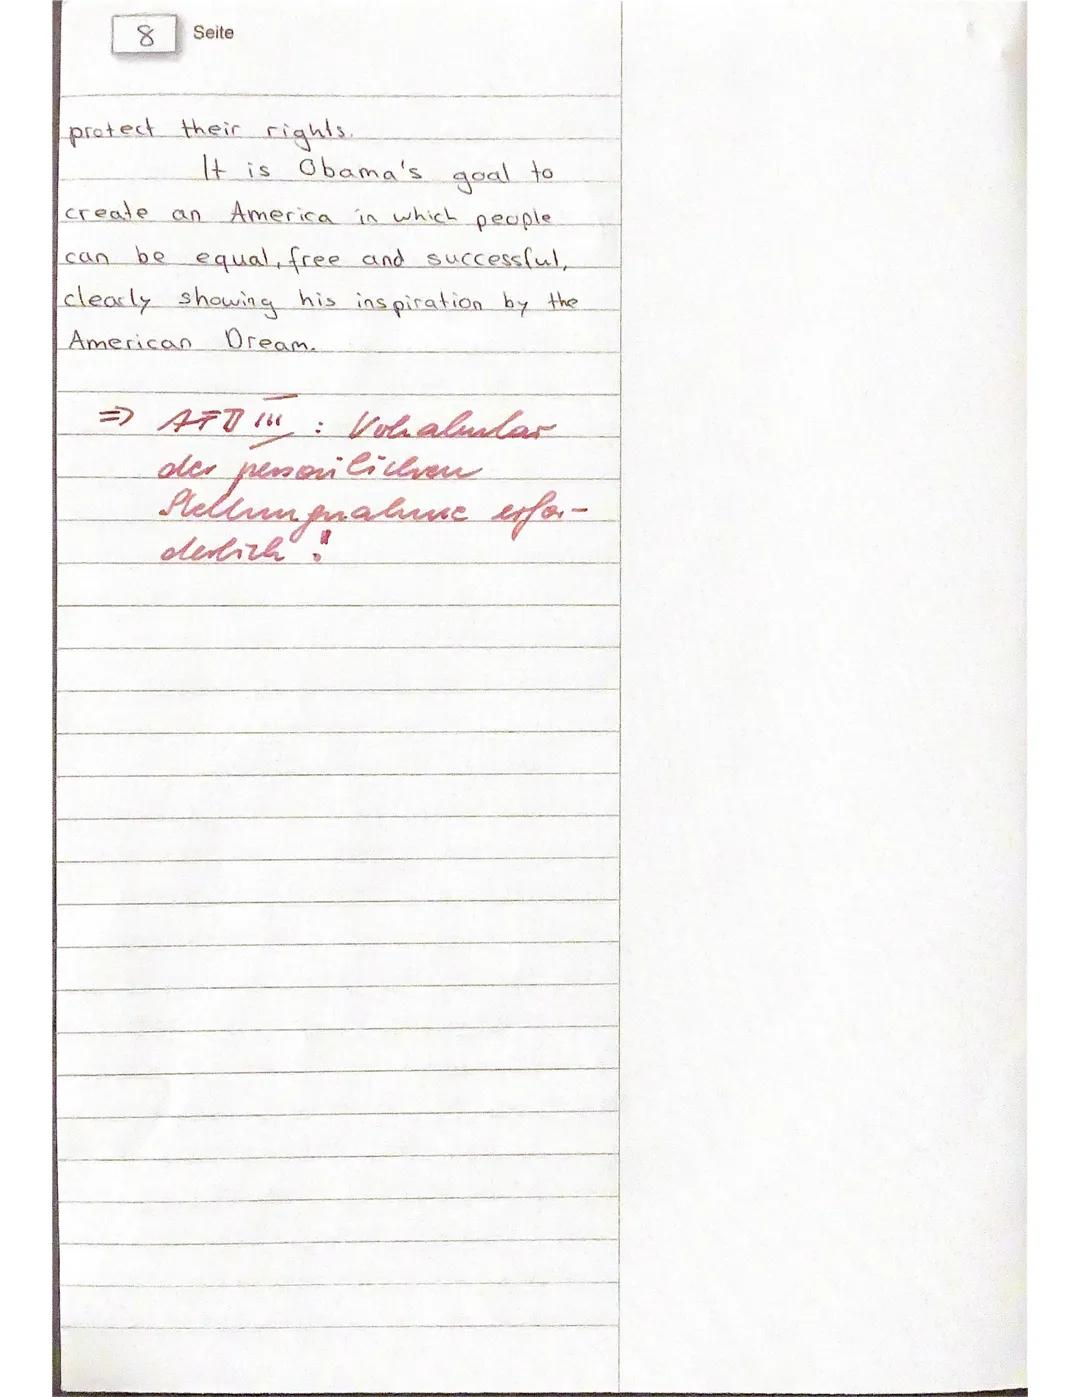 8 Seite
protect their rights.
It is Obama's goal to
create an America in which people
can be equal, free and successful,
clearly showing his inspiration by the
American Dream.
=> AFB III : Vokabular
der persönlichen
Stellungnahme erfor-
derlich !